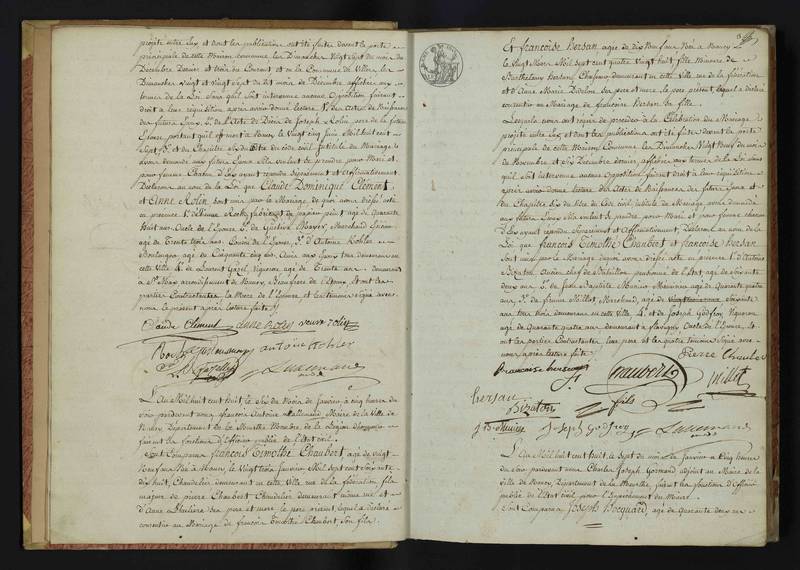 projeté entre Eux et dont les publications ont été faites devant la porte
principale de cette Maison commune les Dimanches Vingt sept du mois de
Décembre dernier et trois du Courant et en la Commune de les
Dimanches Vingt et Vingt sept du mois de Décembre affichées aux
termes de la Loi sans qu'il soit intervenue aucune Opposition faisant
droit à leur réquisition après avoir donné lecture 1º des actes de Naissances
des futurs Epoux, 2º de l'Acte de Décès de Joseph Rolin père de la future
Epouse portant qu'il est mort à Nancy le Vingt cinq Juin Mil huit cent
Sept 3º et du Chapitre six du titre du code civil intitulé du Mariage
avons demandé aux futurs Epoux s'ils veulent se prendre pour Mari et
pour femme Chacun d'Eux ayant répondu Séparément et Affirmativement
Déclarons au nom de la Loi que Claude Dominique Clément
et Anne Rolin sont unis par le Mariage de quoi avons dressé acte
en présence 1º d'Etienne fabricant de papiers peint agé de Quarante
huit ans Oncle de l'Epouse 2º de Gustave Mayer Marchand
agé de Trente trois ans Cousin de l'Epouse, 3º d'Antoine Kohler
Boulanger agé de Cinquante cinq ans Amis aux Epoux tous demeurans en
cette Ville 4º de Laurent Gazel, Vigneron agé de Trente ans demeurant
à St Max arrondissement de Nancy, Beaufrère de l'Epoux, et ont les
parties Contractantes la Mere de l'Epouse et les temoins signé avec
nous le présent après lecture faite
Claude Clément anne rolin veuve rolin
antoine Kohler
L. Gazel
L'An Mil huit cent huit, le Six du Mois de Janvier, à cinq heures du
soir pardevant nous françois Antoine Lallemand Maire de la Ville de
Nancy, Département de la Meurthe Membre de la Légion d'honneur
faisant les fonctions d'Officier public de l'Etat civil.
Sont Comparus françois Timothé Chaubert agé de vingt
Neuf ans Né à Nancy, le Vingt trois Janvier Mil sept cent soixante
dix huit, Chandelier, demeurant en cette Ville rue de la fédération fils
majeur de pierre Chaubert Chandelier demeurant même rue et
d'Anne Lhuliere ses pere et mere, le pere présent, lequel a déclaré
consentir au Mariage de françois Timothé Chaubert, son fils.
Et françoise Hersan agée de Dix Neuf ans Née à Nancy
le Vingt Mai Mil sept cent quatre Vingt huit, fille Mineure de
Barthelemy Hersan, demeurant en cette Ville rue de la fédération
et d'Anne Marie Didelon ses pere et mere, le pere présent, lequel a déclaré
consentir au Mariage de françoise Hersan sa fille.
Lesquels nous ont requis de procéder à la Célébration du Mariage
projeté entre Eux et dont les publications ont été faites devant la porte
principale de cette Maison Commune les Dimanches Vingt Neuf du mois
de Novembre et Six Décembre dernier affichées aux termes de la Loi sans
qu'il soit intervenue aucune Opposition faisant droit à leur réquisition
après avoir donné lecture des Actes de Naissances des futurs Epoux et
du Chapitre six du titre du Code civil intitulé du Mariage avons demandé
aux futurs Epoux s'ils veulent se prendre pour Mari et pour femme chacun
d'Eux ayant répondu Séparément et Affirmativement, Déclarons au nom de la
Loi que françois Timothé Chaubert et françoise Hersan
sont unis par le Mariage de quoi avons dressé acte en présence 1º d'Antoine
Bizaton Ancien chef de Bataillon pensionné de l'Etat, agé de soixante
deux ans, 2º de Jean Baptiste Munier Menuisier agé de quarante quatre
ans, 3º de Millot, Marchand, agé de soixante
ans tous trois demeurans en cette Ville, 4º et de Joseph Godfroy, Vigneron
agé de Quarante quatre ans demeurant à flavigny Oncle de l'Epouse, et
ont les parties Contractantes leur pere et les quatre temoins signé avec
nous après lecture faite
françoise hersan Chaubert Pierre Chaubert
fils millot
hersan
Bizaton
J B Munier Joseph Godfroy Lallemand
L'An Mil huit cent huit, le Sept du mois de Janvier à Cinq heures
du soir pardevant nous Charles Joseph Gormand adjoint au Maire de la
Ville de Nancy, Département de la Meurthe, faisant les fonctions d'Officier
public de l'Etat civil, pour l'Empêchement du Maire.
Sont Comparus Joseph Bocquard, agé de Quarante deux ans